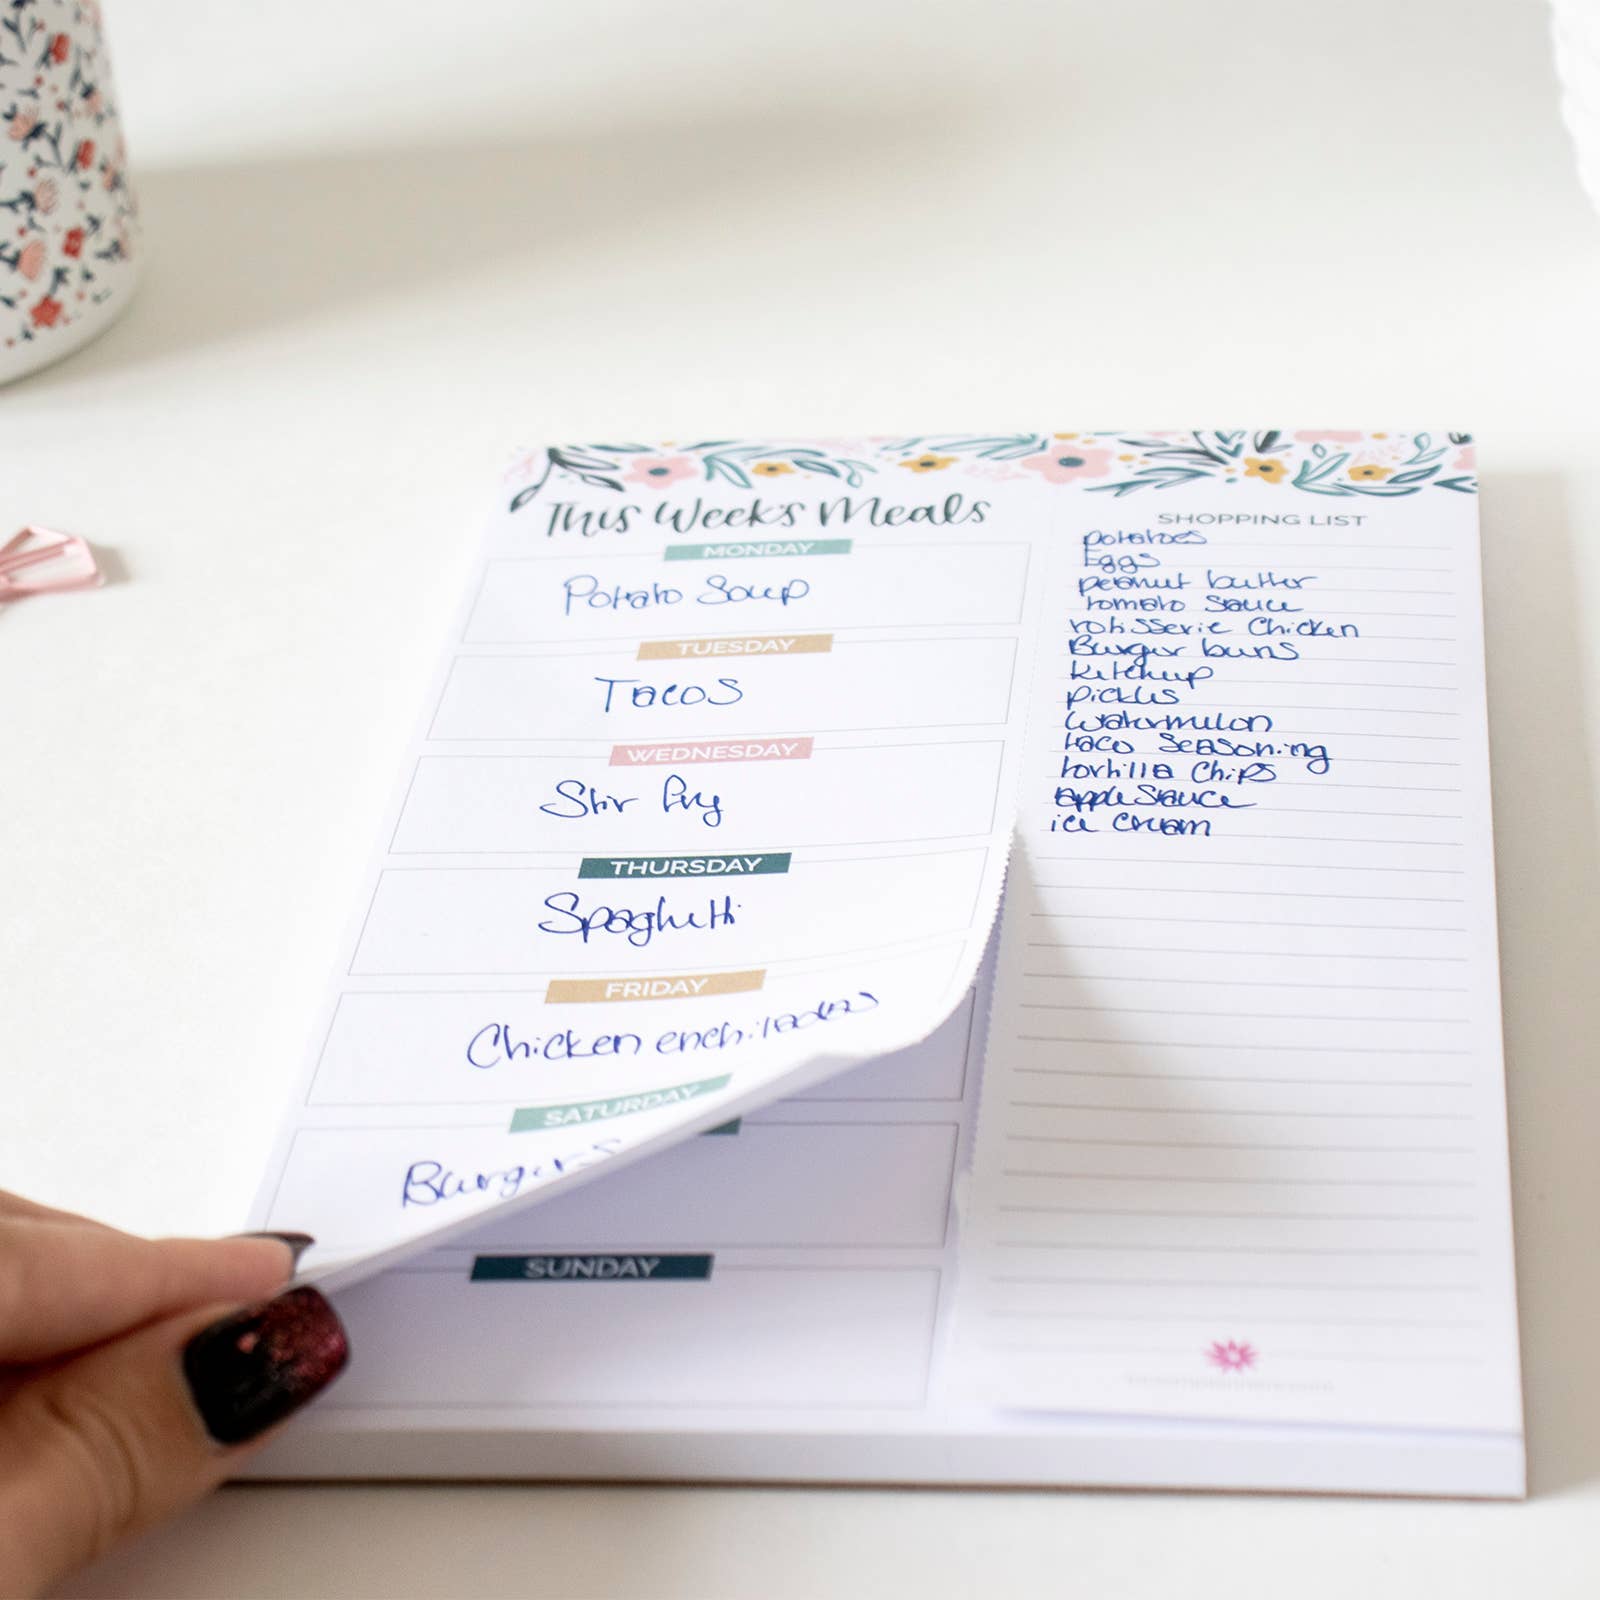 This Week's Meals
MONDAY
Potato Soup
TUESDAY
Tacos
WEDNESDAY
Stir fry
THURSDAY
Spaghetti
FRIDAY
Chicken enchiladas
SATURDAY
Burgers
SUNDAY
SHOPPING LIST
potatoes
Eggs
peanut butter
tomato sauce
rotisserie Chicken
Burger buns
Ketchup
pickles
watermelon
taco seasoning
tortilla Chips
apple sauce
ice cream